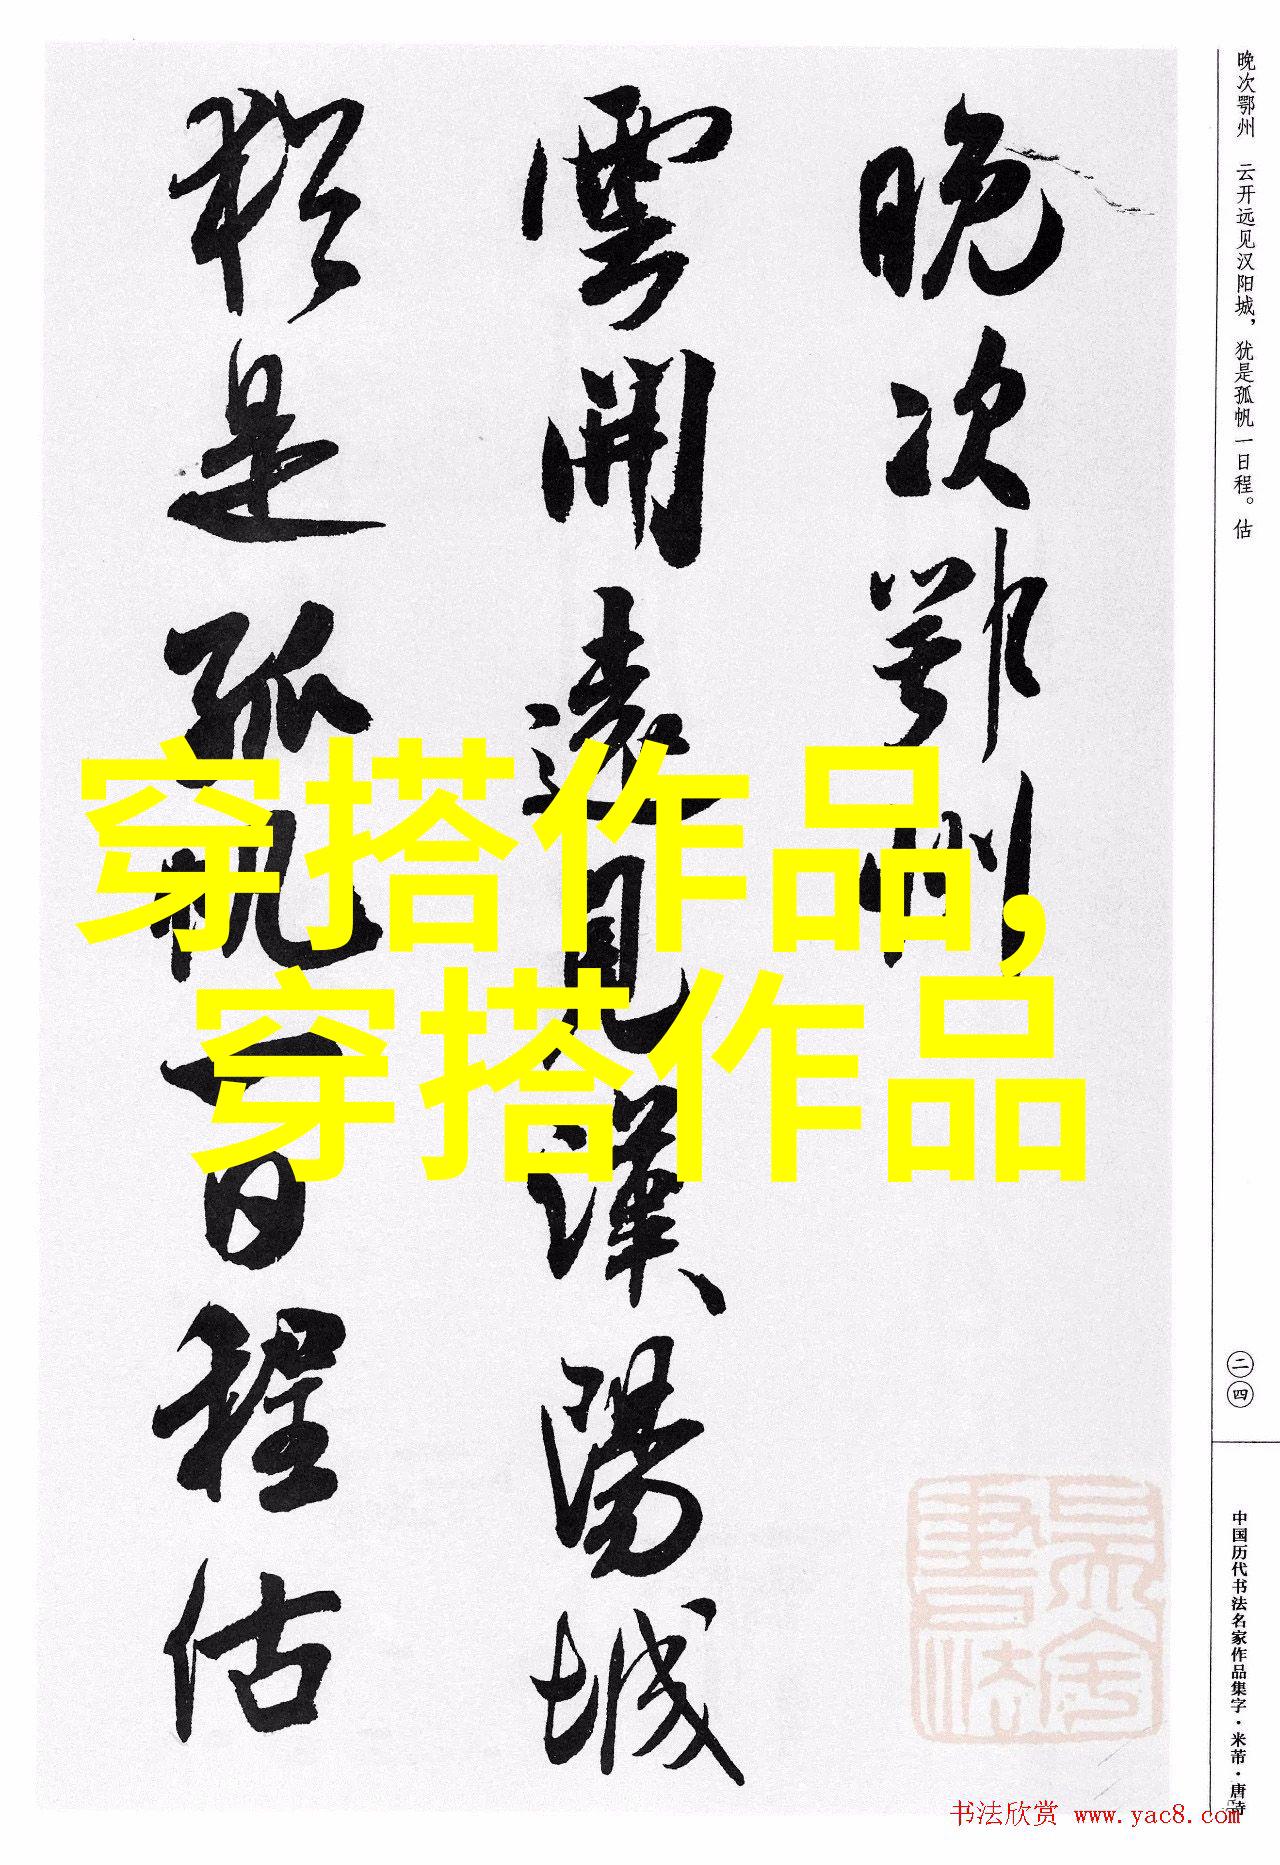 晚次鄂州
雲開遠見漢陽城
猶是孤帆一日程估
穿搭作品,
穿搭作品
晚次鄂州　云开远见汉阳城，犹是孤帆一日程。估
二四
中国历代书法名家作品集字·米芾·唐诗
书法欣赏 www.yac8.com